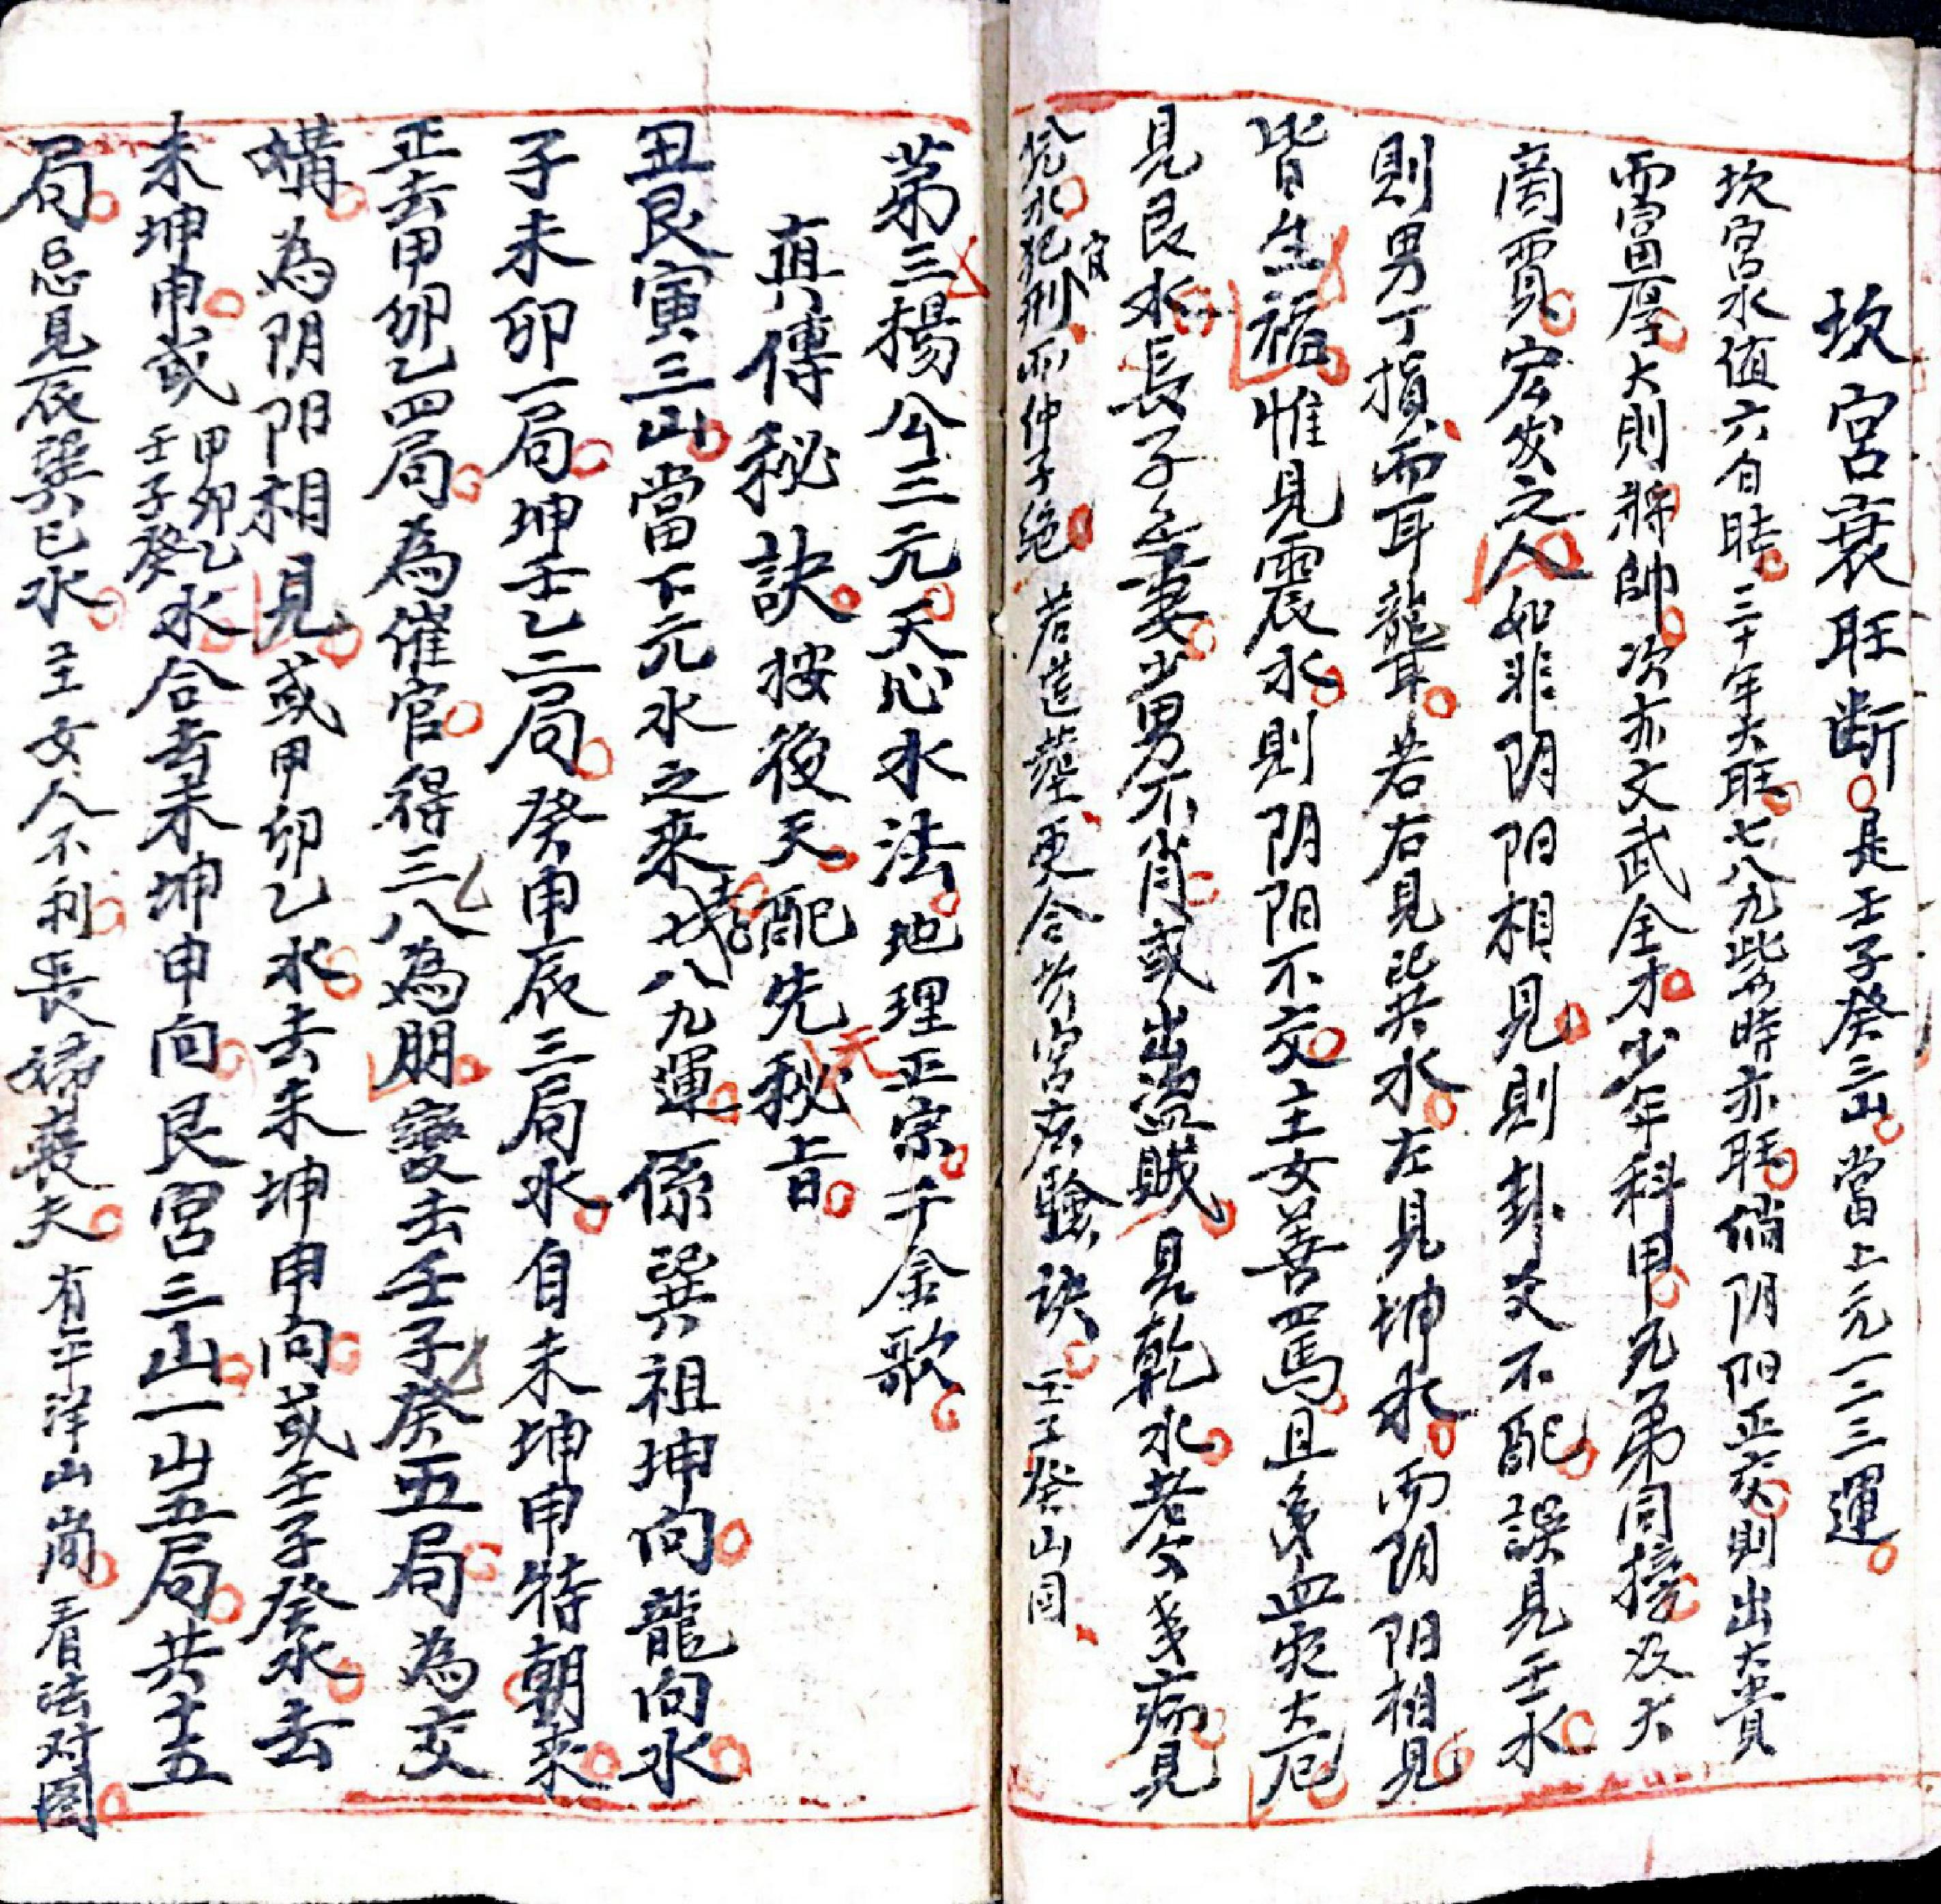 坎宮衰旺断是壬子癸三山當上元一二三運
坎宮水值六白時三十年大旺七八九些時亦旺倘阴阳正交則出大貴
而富厚大則將帥次亦文武全才少年科甲兄弟同接及大
商賈宏发之人如非阴阳相見則卦爻不配誤見壬水
則男丁損而耳聾若右見巽水左見坤水而阴阳相見
皆生福惟見震水則阴阳不交主女善罵且身血灾大厄
見艮水長子無妻少男不肖或出盜賊見乾水老父多病見
水犯刑宫而仲子绝若造塋更合宮应驗訣壬子癸山图
第三楊公三元天心水法地理正宗千金歌
真傳秘訣按後天配先秘旨
丑艮寅三山當下元水之來七八九運係巽祖坤向龍向水
子未卯一局坤壬乙二局癸申辰三局水自未坤申特朝來
正去甲卯乙四局為催官得三八為朋變去壬子癸五局為交
媾為阴阳相見或甲卯乙水去未坤申向或壬子癸水去
未坤申或甲卯乙壬子癸水合去未坤申向艮宮三山一山五局共十五
局忌見辰巽巳水主女人不利長婦喪夫有平洋山崗看法对图